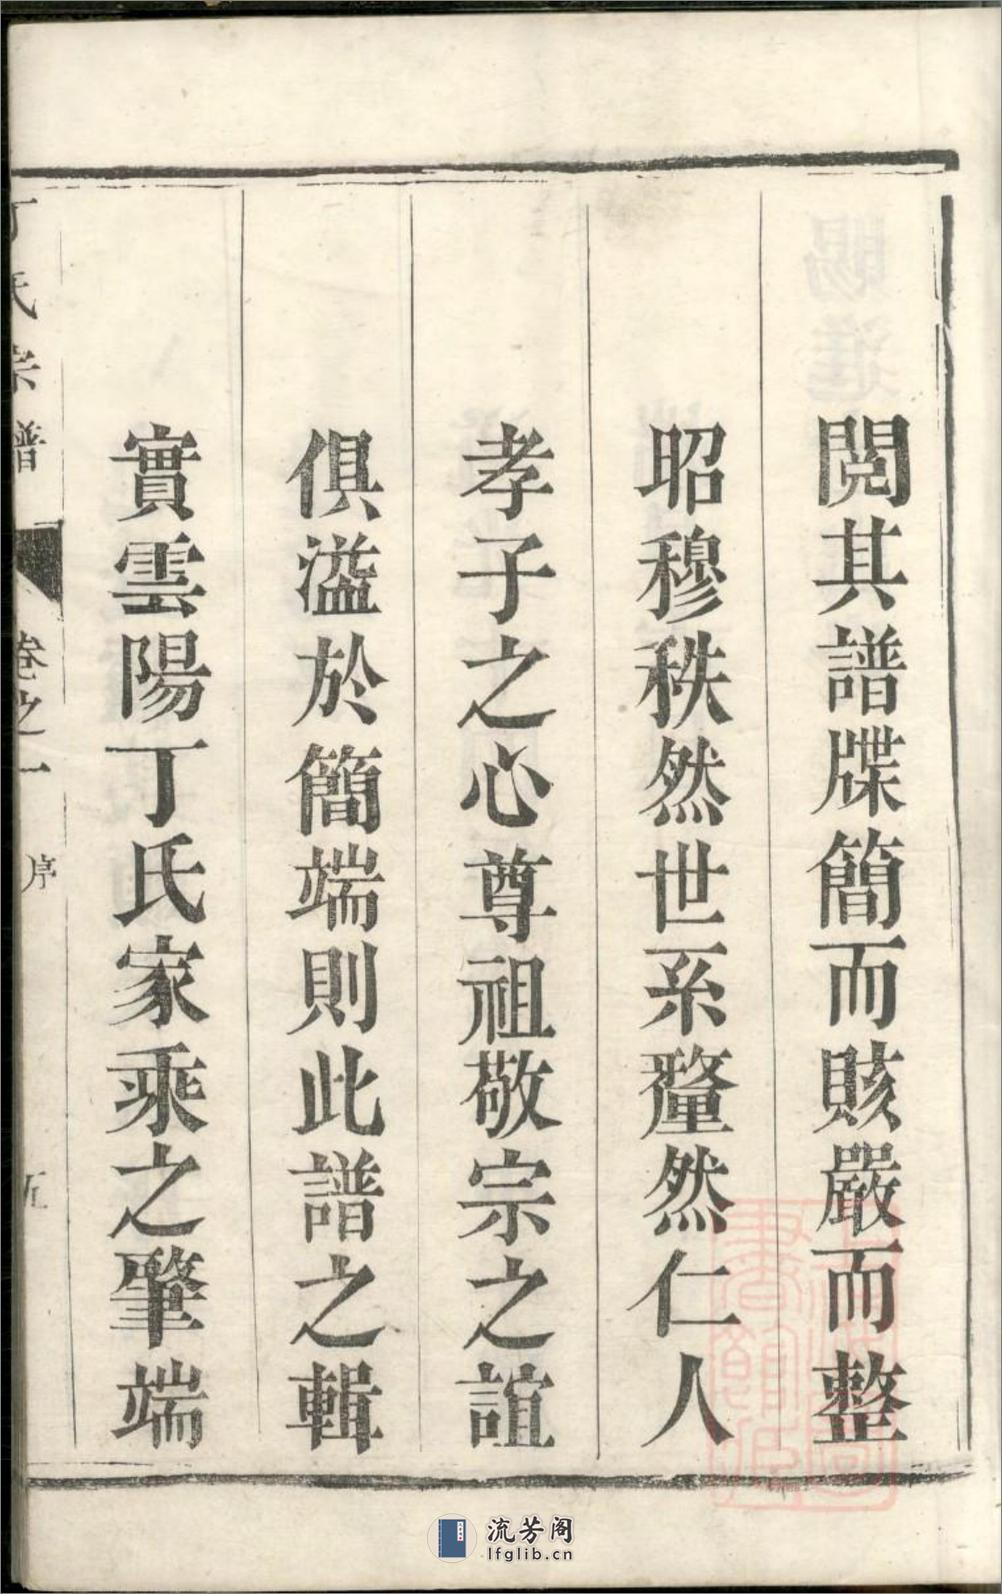 閱其譜牒簡而賅嚴而整
昭穆秩然世系釐然仁人
孝子之心尊祖敬宗之誼
俱溢於簡端則此譜之輯
實雲陽丁氏家乘之肇端
丁氏宗譜
卷之一
序
五
流芳阁
lfglib.cn